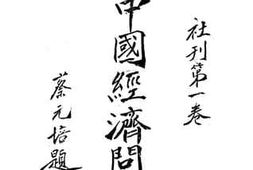 社刊第一卷
中國經濟問
蔡元培題